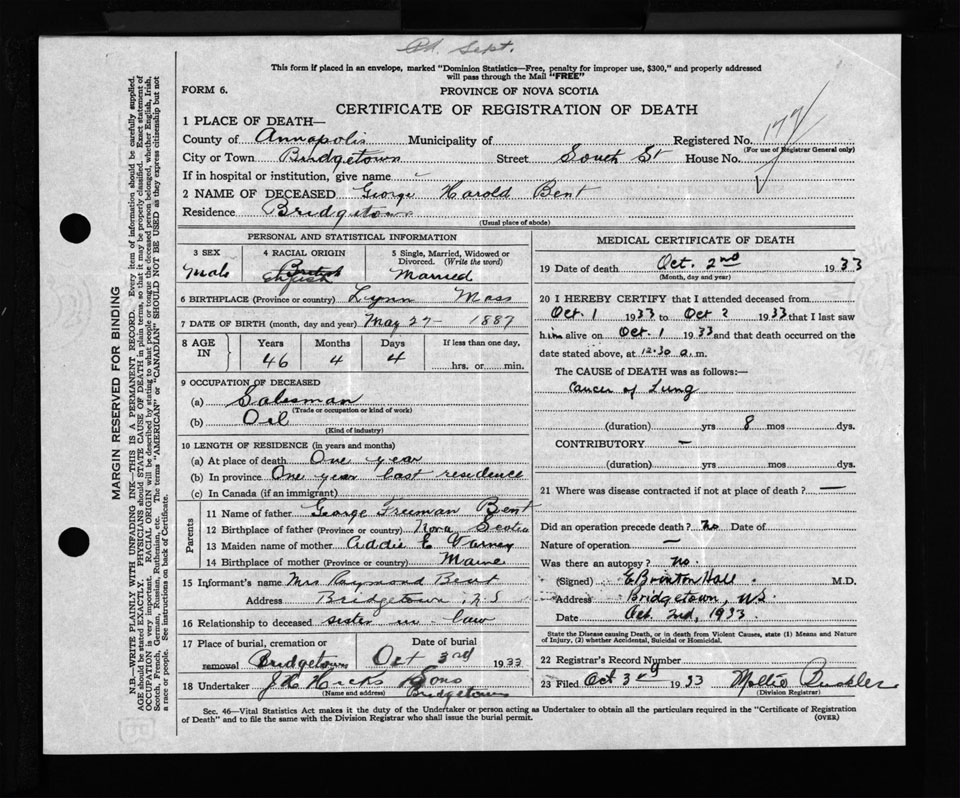 Sept.
This form if placed in an envelope, marked "Dominion Statistics—Free, penalty for improper use, $300," and properly addressed
will pass through the Mail "FREE"
FORM 6.
PROVINCE OF NOVA SCOTIA
CERTIFICATE OF REGISTRATION OF DEATH
1 PLACE OF DEATH—
County of Annapolis Municipality of Registered No. 177
(For use of Registrar General only)
City or Town Bridgetown Street South St House No.
If in hospital or institution, give name
2 NAME OF DECEASED George Harold Bent
Residence Bridgetown
(Usual place of abode)
PERSONAL AND STATISTICAL INFORMATION
3 SEX
Male
4 RACIAL ORIGIN
British
English
5 Single, Married, Widowed or Divorced. (Write the word)
Married
6 BIRTHPLACE (Province or country) Lynn Mass
7 DATE OF BIRTH (month, day and year) May 27 1887
8 AGE IN
Years Months Days If less than one day,
46 4 4 hrs. or min.
9 OCCUPATION OF DECEASED
(a) Salesman
(Trade or occupation or kind of work)
(b) Oil
(Kind of industry)
10 LENGTH OF RESIDENCE (in years and months)
(a) At place of death One year
(b) In province One year last residence
(c) In Canada (if an immigrant)
Parents
11 Name of father George Freeman Bent
12 Birthplace of father (Province or country) Nova Scotia
13 Maiden name of mother Addie E Varney
14 Birthplace of mother (Province or country) Maine
15 Informant's name Mrs Raymond Bent
Address Bridgetown, N S
16 Relationship to deceased sister in law
17 Place of burial, cremation or removal Bridgetown
Date of burial
Oct 3rd 1933
18 Undertaker J H Hicks Sons
(Name and address) Bridgetown
MEDICAL CERTIFICATE OF DEATH
19 Date of death Oct. 2nd 1933
(Month, day and year)
20 I HEREBY CERTIFY that I attended deceased from
Oct. 1 1933 to Oct 2 1933 that I last saw
him alive on Oct. 1 1933 and that death occurred on the
date stated above, at 12.30 a.m.
The CAUSE OF DEATH was as follows:—
Cancer of Lung
(duration) yrs 8 mos dys.
CONTRIBUTORY —
(duration) yrs mos dys.
21 Where was disease contracted if not at place of death? —
Did an operation precede death? no Date of
Nature of operation —
Was there an autopsy? no.
(Signed) E Brinton Hall. M.D.
Address Bridgetown, N.S.
Date Oct. 2nd, 1933
State the Disease causing Death, or in death from Violent Causes, state (1) Means and Nature
of Injury, (2) whether Accidental, Suicidal or Homicidal.
22 Registrar's Record Number
23 Filed Oct 3rd 1933
(Division Registrar)
Sec. 46—Vital Statistics Act makes it the duty of the Undertaker or person acting as Undertaker to obtain all the particulars required in the "Certificate of Registration
of Death" and to file the same with the Division Registrar who shall issue the burial permit. (OVER)
MARGIN RESERVED FOR BINDING
N.B.—WRITE PLAINLY WITH UNFADING INK—THIS IS A PERMANENT RECORD. Every item of information should be carefully supplied.
AGE should be stated EXACTLY. PHYSICIANS should STATE CAUSE OF DEATH in plain terms, so that it may be properly classified. Exact statement of
OCCUPATION is very important. RACIAL ORIGIN will be described by stating to what people or tongue the deceased person belonged, whether English, Irish,
Scotch, French, German, Russian, Ruthenian, etc. The terms "AMERICAN" or "CANADIAN" SHOULD NOT BE USED as they express citizenship but not
a race or people. See instructions on back of Certificate.